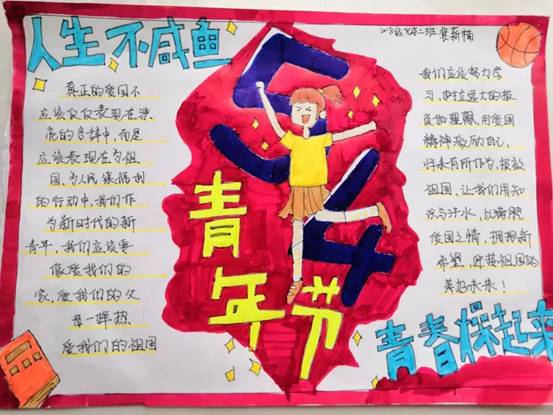 人生不咸鱼
真正的爱国不
应该仅仅表现在漂
亮的言辞中，而是
应该表现在为祖
国、为人民谋福利
的行动中，我们作
为新时代的新
青年，我们应该要
像爱我们的
家，爱我们的父
母一样热
爱我们的祖国
54
青年节
二班
我们应该努力学
习，树立远大的报
负和理想，用爱国
精神激励自己，
将来有所作为，报效
祖国，让我们用知
识与汗水，以满腔
爱国之情，拥抱新
希望，迎接祖国的
美好未来！
青春燥起来